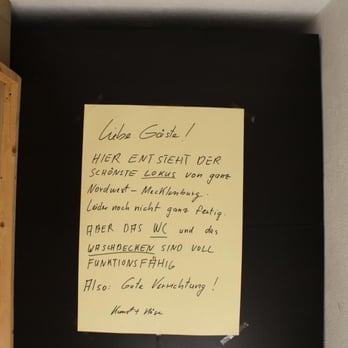 Liebe Gäste!
HIER ENTSTEHT DER
SCHÖNSTE LOKUS von ganz
Nordwest-Mecklenburg.
Leider noch nicht ganz fertig.
ABER DAS WC und das
WASCHBECKEN SIND VOLL
FUNKTIONSFÄHIG
Also: Gute Verrichtung!
Kunst +